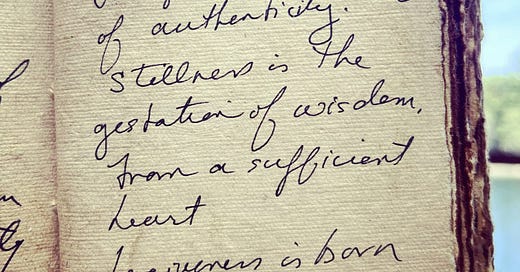 of authenticity.
Stillness is the
gestation of wisdom.
From a sufficient
heart
is born